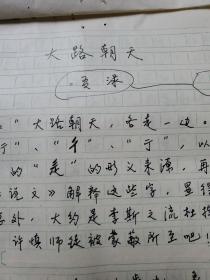 大路朝天
夏渌
“大路朝天，各走一边。
”、“
”、“
”，以
的“走”的形义来源，再
说文》解释这些字，显得
意外，大约是李斯之流杜撰
许慎师徒被蒙蔽所至吧！